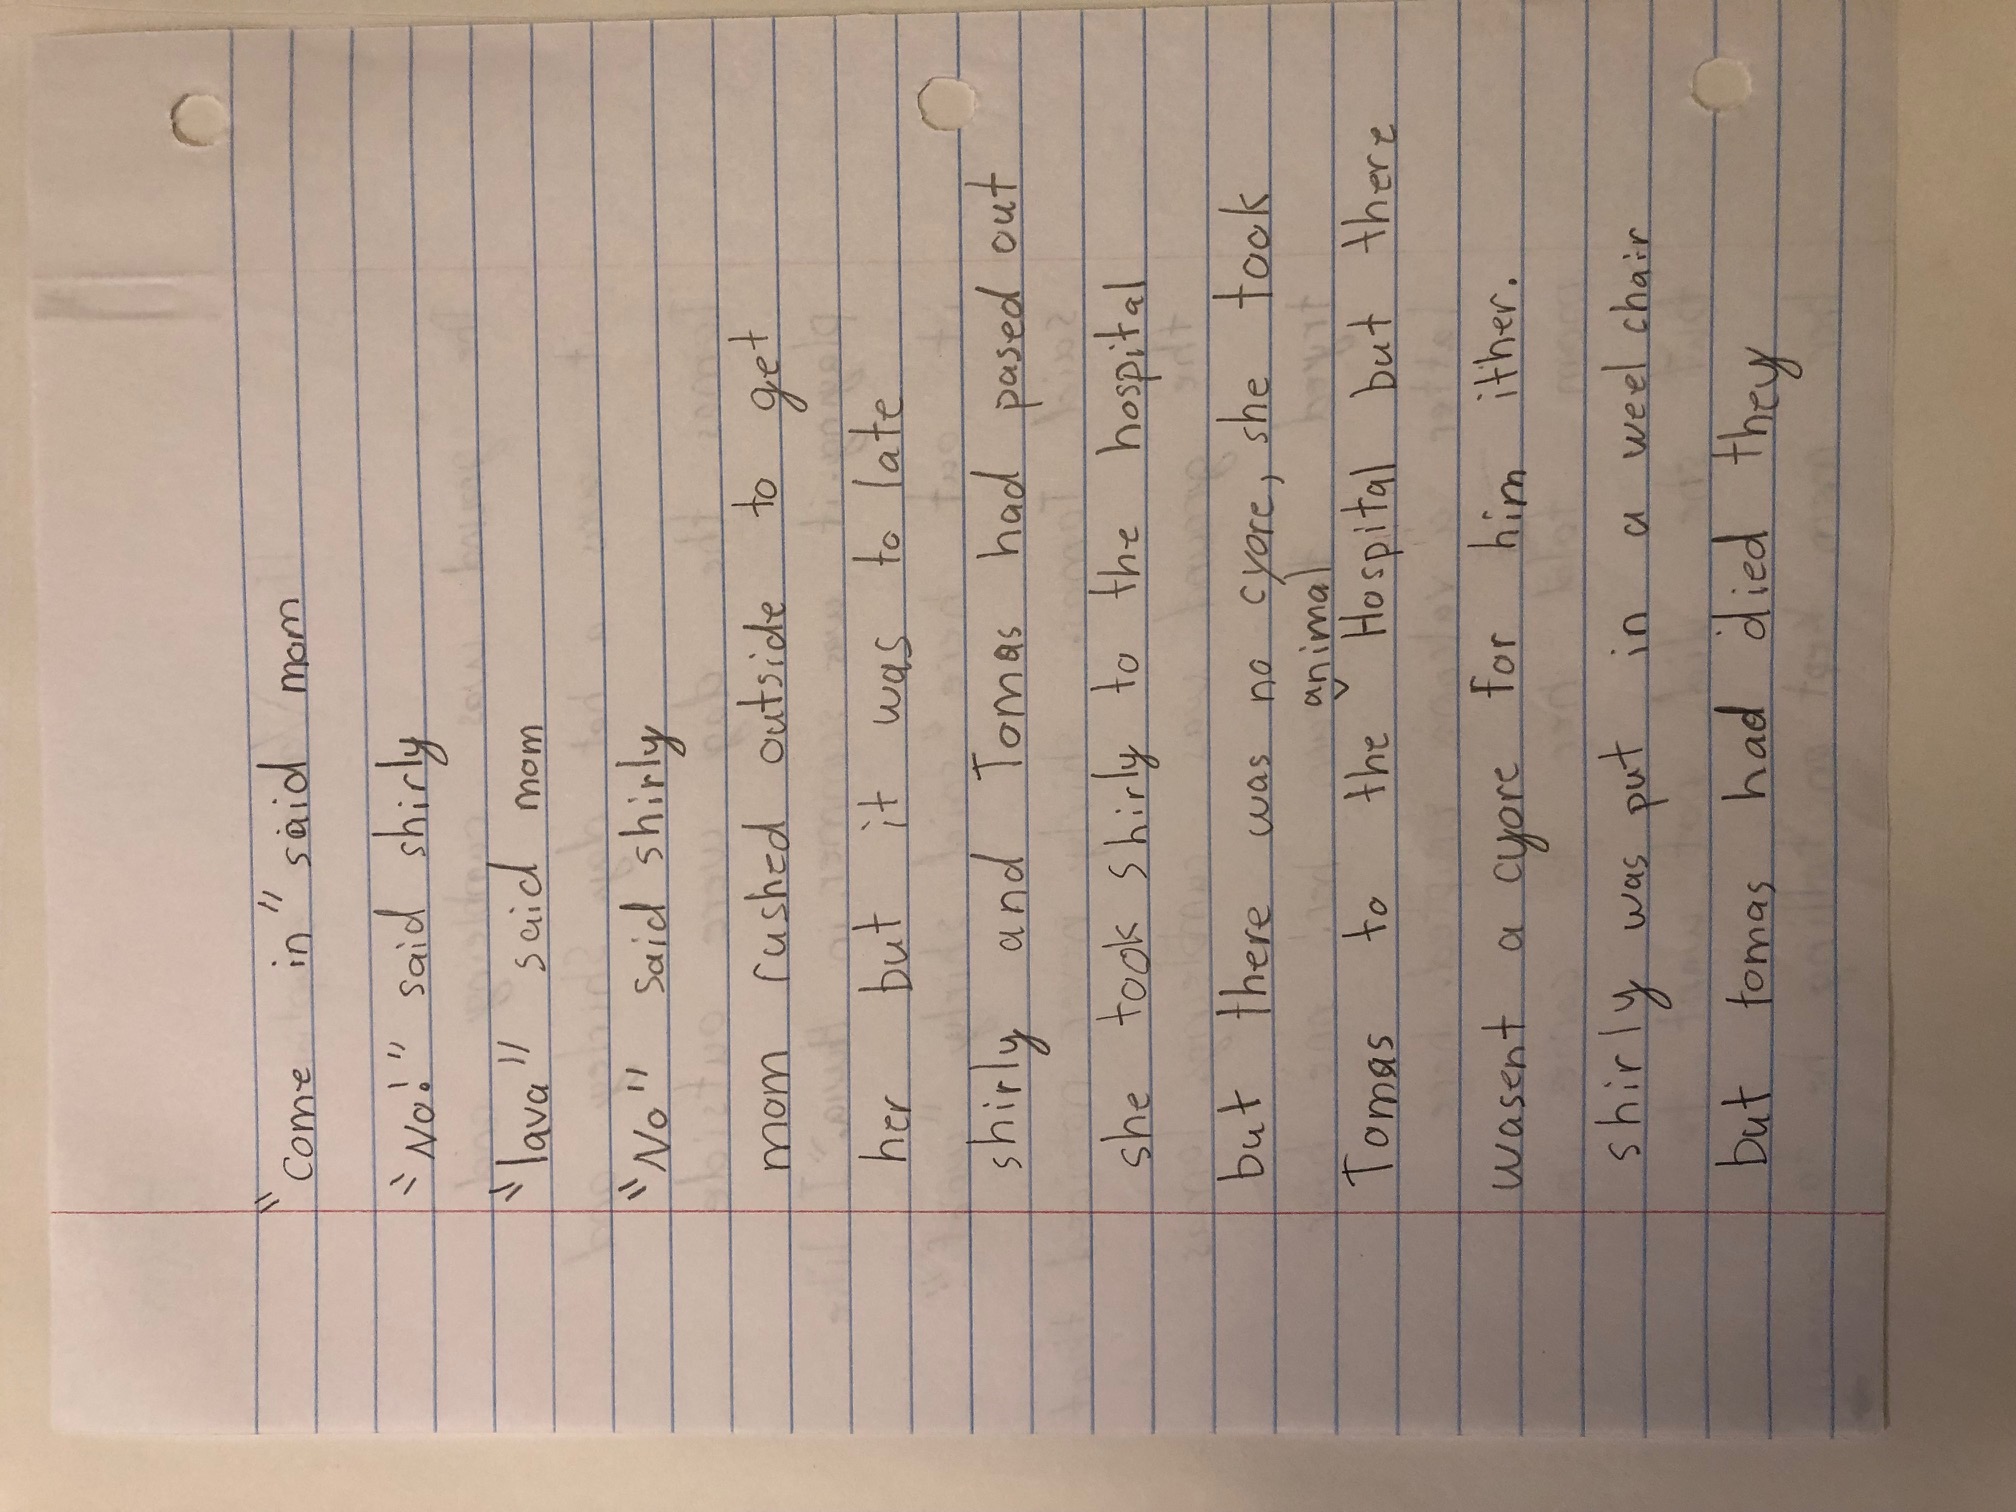 "come in" said mom
"No!" said shirly
"lava" said mom
"No" said shirly
mom rushed outside to get
her but it was to late
shirly and Tomas had pased out
she took shirly to the hospital
but there was no cyore, she took
animal
Tomas to the ˇ Hospital but there
wasent a cyore for him ither.
shirly was put in a weel chair
but tomas had died they